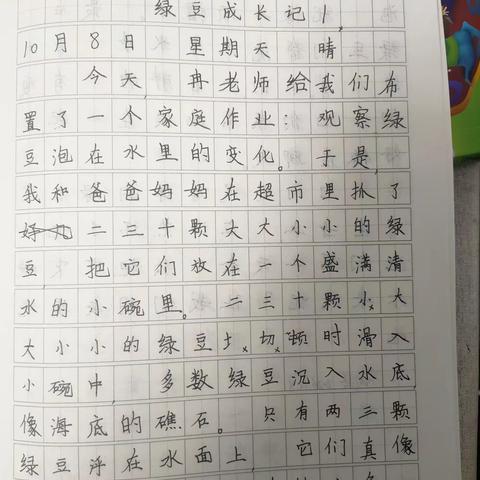 绿豆成长记1
10月8日 星期天 晴
今天,冉老师给我们布
置了一个家庭作业:观察绿
豆泡在水里的变化。于是,
我和爸爸妈妈在超市里抓了
二三十颗大大小小的绿
豆,把它们放在一个盛满清
水的小碗里。二三十颗小大
大小小的绿豆切顿时滑入
小碗中,多数绿豆沉入水底,
像海底的礁石。只有两三颗
绿豆浮在水面上,它们真像